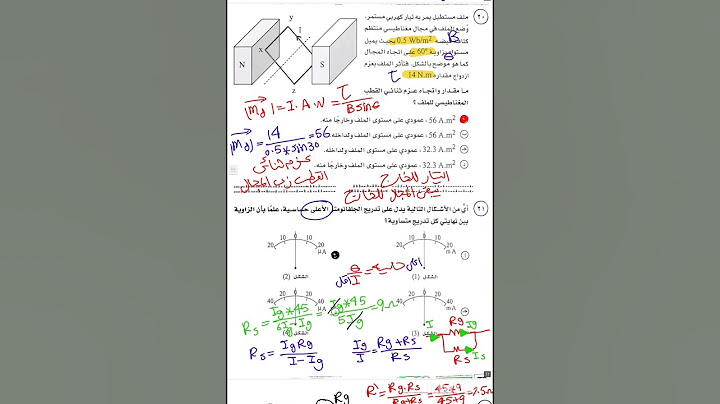 ٢٠
ملف مستطيل يمر به تيار كهربي مستمر،
وُضع الملف في مجال مغناطيسي منتظم
كثافة فيضه 0.5 Wb/m² بحيث يميل
مستواه بزاوية 60° على اتجاه المجال
كما هو موضح بالشكل. فتأثر الملف بعزم
ازدواج مقداره 14 N.m
B
θ
τ
ما مقدار واتجاه عزم ثنائي القطب
المغناطيسي للملف؟
x
y
z
I
N
S
|md| = I.A.N = τ / B sin θ
56 A.m² ، عمودي على مستوى الملف وخارجًا منه.
56 A.m² ، عمودي على مستوى الملف ولداخله.
32.3 A.m² ، عمودي على مستوى الملف ولداخله.
32.3 A.m² ، عمودي على مستوى الملف وخارجًا منه.
|md| = 14 / 0.5*sin30 = 56
عزم ثنائي
القطب زي المجال
التيار للخارج
يبقى المجال للخارج
٢١
أيٌّ من الأشكال التالية يدل على تدريج الجلفانومتر الأعلى حساسية، علمًا بأن الزاوية
بين نهايتي كل تدريج متساوية؟
20 10 0 10 20
μA
الشكل (2)
20 10 0 10 20
mA
الشكل (1)
حساسية = θ / I
أقل
40 20 0 20 40
μA
40 20 0 20 40
mA
الشكل (3)
Rs = Ig*45 / 6I-Ig = Ig*45 / 5Ig = 9Ω
Rs = Ig Rg / I - Ig
Ig / I = Rg + Rs / Rs
I
Rg
Ig
Rs
Is
Rg
R' = Rg.Rs / Rg+Rs = 45*9 / 45+9 = 7.5Ω